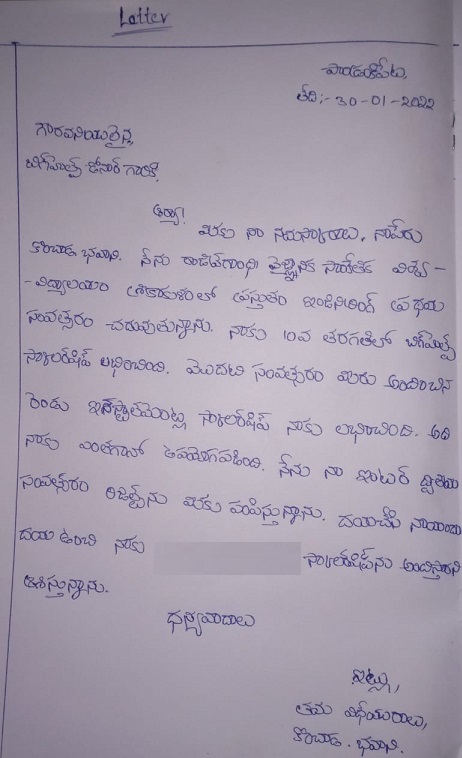 Latter
పాండంకిపేట,
తేది:- 30-01-2022
గౌరవనీయులైన,
బిగ్‌హెల్ప్ డోనార్ గారికి,
అయ్యా!
మీకు నా నమస్కారాలు, నాపేరు
కొంచాడ భవాని. నేను రాజీవ్‌గాంధీ వైజ్ఞానిక సాంకేతిక విశ్వ -
- విద్యాలయం శ్రీకాకుళంలో ప్రస్తుతం ఇంజినీరింగ్ ప్రథమ
సంవత్సరం చదువుతున్నాను. నాకు 10వ తరగతిలో బిగ్‌హెల్ప్
స్కాలర్‌షిప్ లభించింది. మొదటి సంవత్సరం మీరు అందించిన
రెండు ఇన్‌స్టాల్‌మెంట్ల స్కాలర్‌షిప్ నాకు లభించింది. అది
నాకు ఎంతగానో ఉపయోగపడింది. నేను నా ఇంటర్ ద్వితీయ
సంవత్సరం రిజల్ట్‌ను మీకు పంపిస్తున్నాను. దయచేసి నాయందు
దయ ఉంచి నాకు స్కాలర్‌షిప్‌ను అందిస్తారని
ఆశిస్తున్నాను.
ధన్యవాదాలు
ఇట్లు,
తమ విధేయురాలు,
కొంచాడ. భవాని.